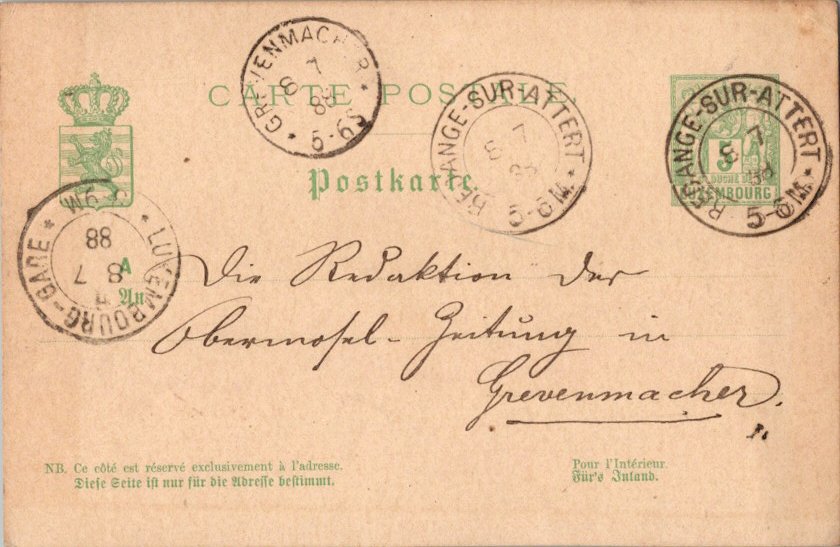 CARTE POSTALE
Postkarte
GREVENMACHER
8 7
88
5-6S
REDANGE-SUR-ATTERT
8 7
88
5-6M
REDANGE-SUR-ATTERT
8 7
88
5-6M
5
LUXEMBOURG
LUXEMBOURG-GARE
88
8 7
A
An
Die Redaktion der
Obermosel-Zeitung in
Grevenmacher.
NB. Ce côté est réservé exclusivement à l'adresse.
Diese Seite ist nur für die Adresse bestimmt.
Pour l'Intérieur.
Für's Inland.